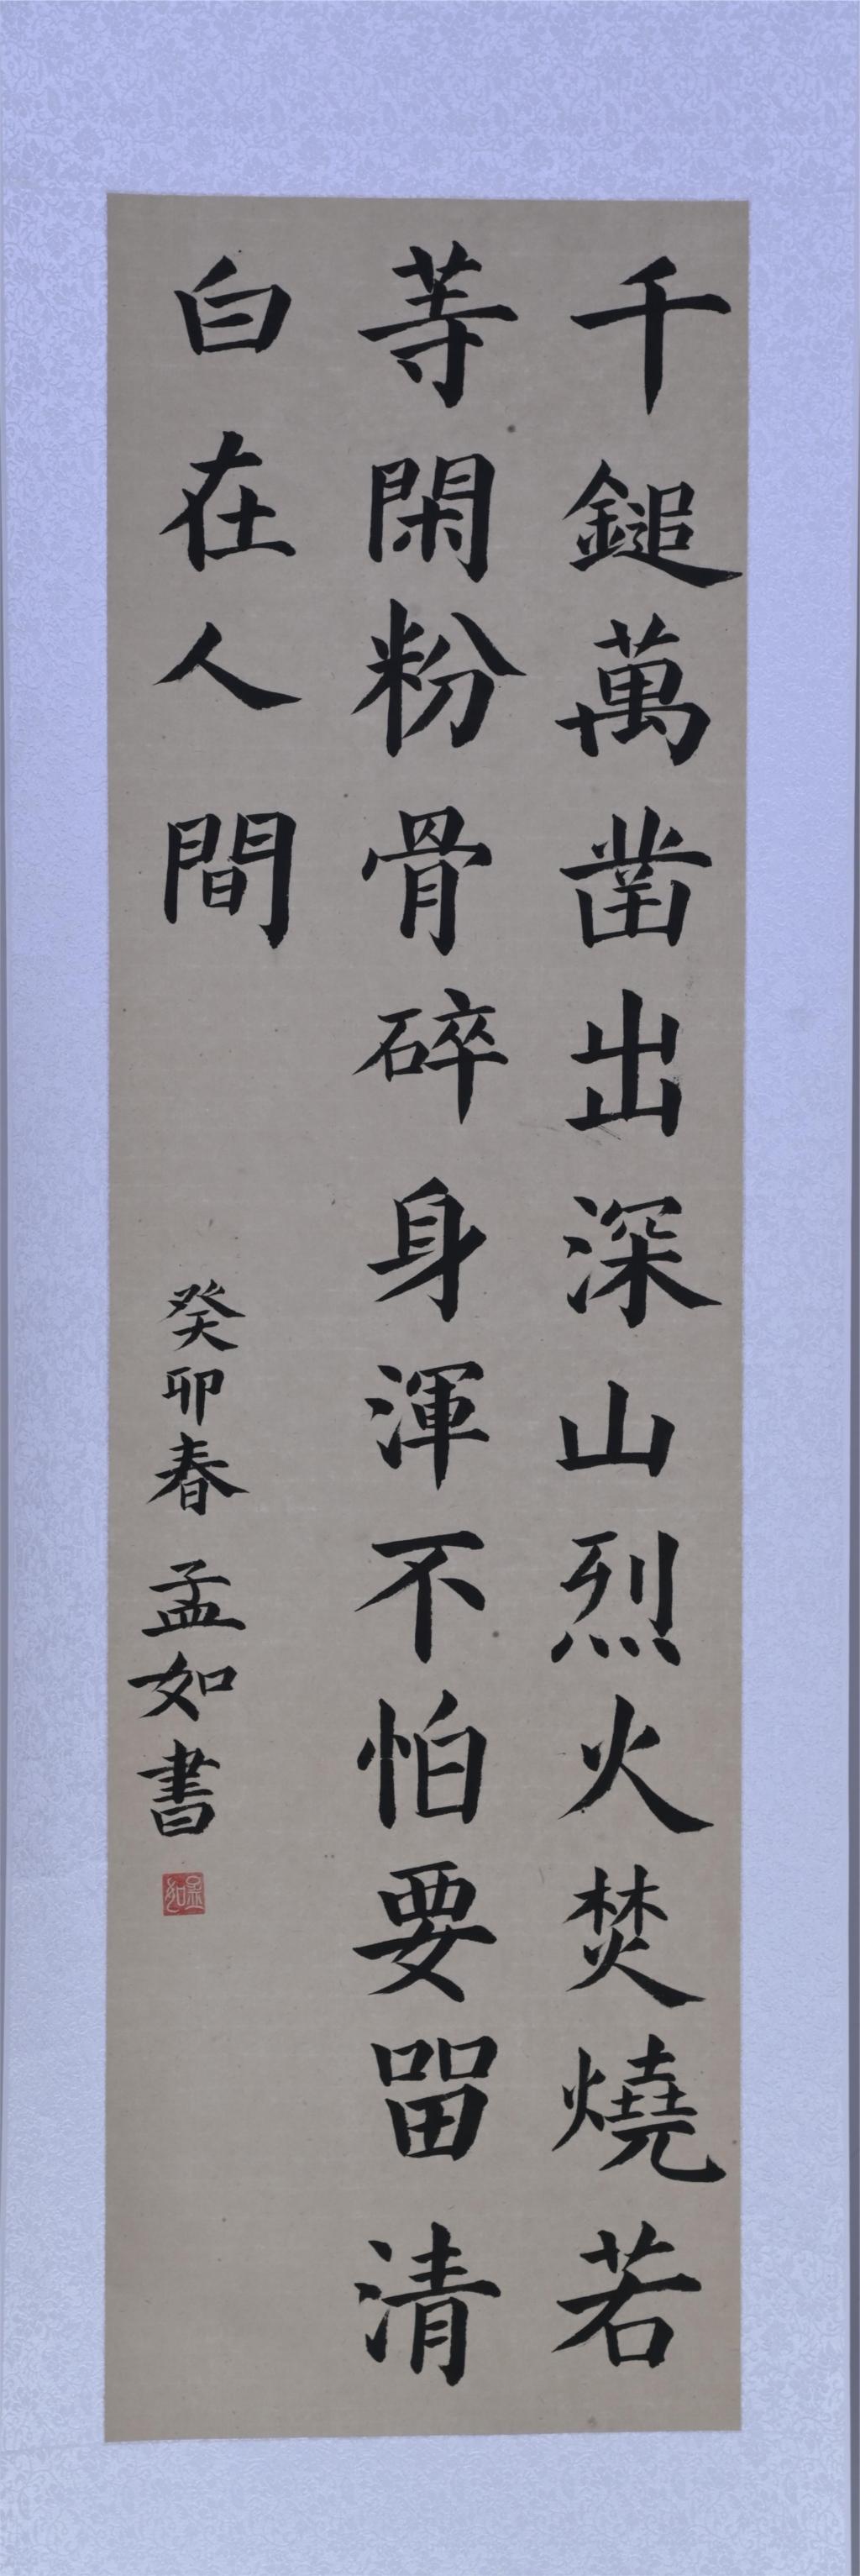 千鎚萬鑿出深山烈火焚燒若
等閑粉骨碎身渾不怕要畱清
白在人間
癸卯春 孟如書
孟如